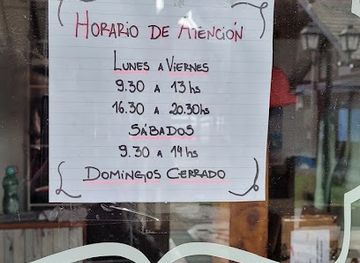 HORARIO DE ATENCIÓN
LUNES A VIERNES
9.30 A 13hs
16.30 A 20.30hs
SÁBADOS
9.30 A 14hs
DOMINGOS CERRADO